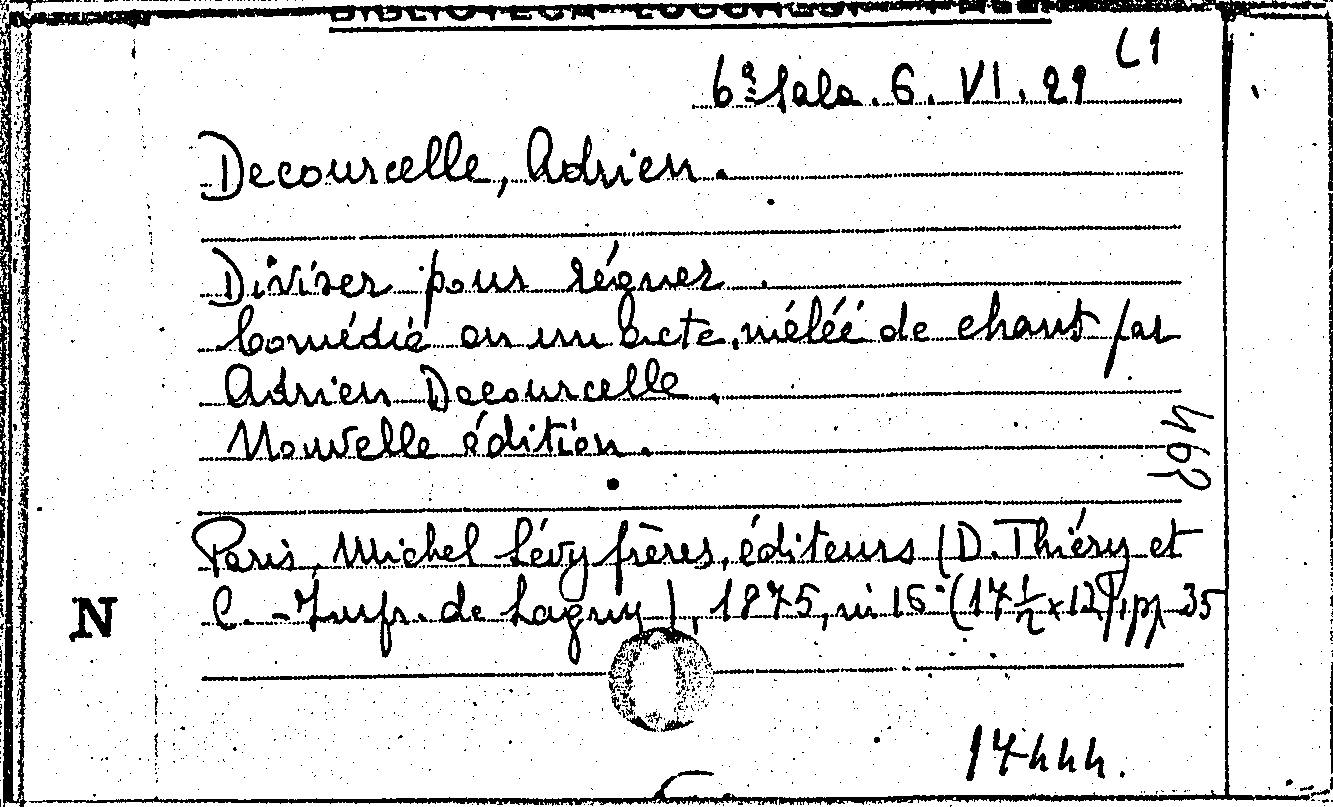 BIBLIOTECA LUCCHESI
L1
6ª Sala. 6. VI. 29
Decourcelle, Adrien.
Diviser pour régner.
Comédie en un acte, mêlée de chant par
Adrien Decourcelle.
Nouvelle édition.
Paris, Michel Lévy frères, éditeurs (D. Thiéry et
C. - Impr. de Lagny), 1875, in 16° (17 ½ x 12), pp 35
N
17444.